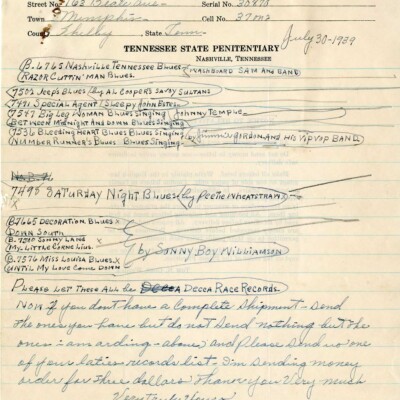 Street No. 162 Beale Ave. Serial No. 30898
Town Memphis Cell No. 37 m2
County Shelby State Tenn. July 30-1939
TENNESSEE STATE PENITENTIARY
NASHVILLE, TENNESSEE
B-6765 NASHVILLE TENNESSEE BLUES
RAZOR CUTTIN' MAN BLUES. WASHBOARD SAM AND BAND
7502 JEEP'S BLUES (by AL COOPER'S SAVOY SULTANS
7491 SPECIAL AGENT (SLEEPY JOHN ESTES
7547 BIG LEG WOMAN BLUES SINGING
BETWEEN MIDNIGHT AND DAWN BLUES SINGING JOHNNY TEMPLE
7536 BLEEDING HEART BLUES BLUES SINGING
NUMBER RUNNER'S BLUES BLUES SINGING by AND HIS VIP VOP BAND
7498 SATURDAY NIGHT BLUES (by PEETIE WHEATSTRAW)
B7665 DECORATION BLUES X
DOWN SOUTH
SUNNY LAND
MY LITTLE CORNELIUS.
B.7576 MISS LOUISA BLUES. X
UNTIL MY LOVE COME DOWN
by SONNY BOY WILLIAMSON
PLEASE LET THESE ALL be DECCA RACE RECORDS.
Now if you don't have a complete shipment - send
the ones you have but do not send nothing but the
ones I am ording - above and Please send me one
of your laties records list - I'm sending money
order for three dollars Thank you Very much
Very Truly Yours